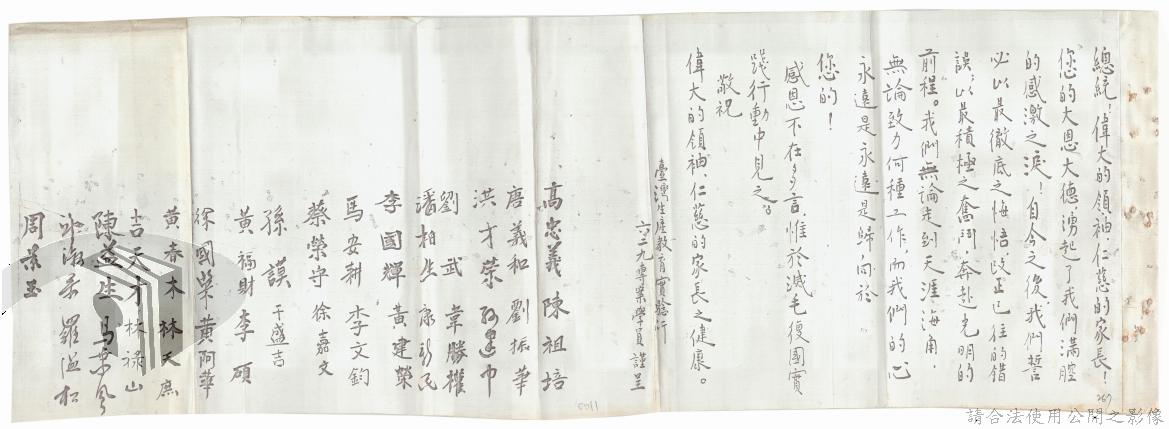 總統，偉大的領袖、仁慈的家長！
您的大恩大德湧起了我們滿腔
的感激之淚！自今之後我們誓
必以最徹底之悔悟，改正已往的錯
誤；以最積極之奮鬥，奔赴光明的
前程。我們無論走到天涯海角，
無論致力何種工作，而我們的心
永遠是永遠是歸向於
您的！
感恩不在多言，惟於滅毛復國實
踐行動中見之。
敬祝
偉大的領袖、仁慈的家長之健康。
臺灣生產教育實驗所
六二九專案學員 謹呈
高忠義 陳祖培
唐義和 劉振華
洪才榮 孫建中
劉武 韋勝權
潘柏生 康新民
李國輝 黃建榮
馬安耕 李文鈞
蔡榮守 徐嘉文
孫謨 于盛吉
黃福財 李頎
徐國榮 黃阿華
黃春木 林天庶
吉天才 林祿山
陳益生 馬景風
羅溢松
周景玉
267
請合法使用公開之影像